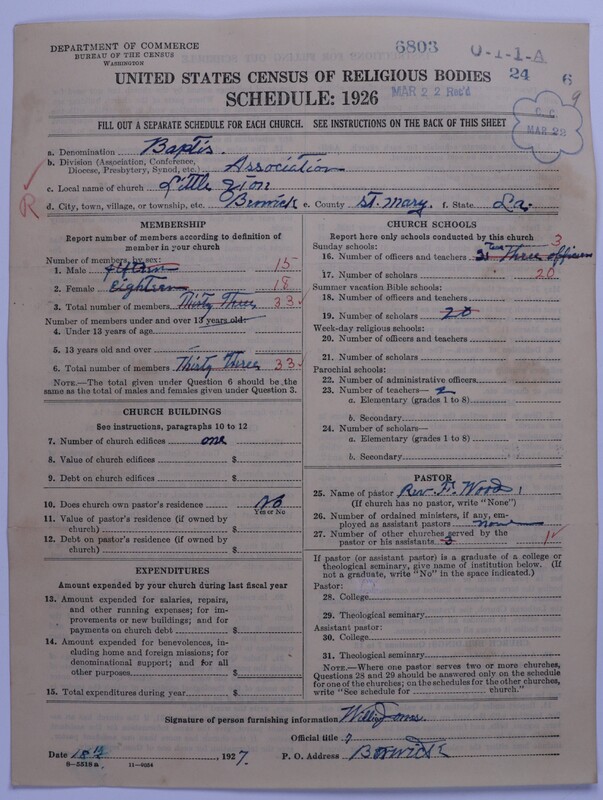 DEPARTMENT OF COMMERCE
BUREAU OF THE CENSUS
WASHINGTON
6803
U-1-1-A
24
6
9
UNITED STATES CENSUS OF RELIGIOUS BODIES
SCHEDULE: 1926
MAR 22 Rec'd
MAR 22
FILL OUT A SEPARATE SCHEDULE FOR EACH CHURCH. SEE INSTRUCTIONS ON THE BACK OF THIS SHEET
a. Denomination Baptis.
b. Division (Association, Conference, Diocese, Presbytery, Synod, etc.) Association
c. Local name of church Little Zion
R
d. City, town, village, or township, etc. Berwick e. County St. Mary. f. State La.
MEMBERSHIP
Report number of members according to definition of member in your church
Number of members, by sex:
1. Male fifteen 15
2. Female Eighteen 18
3. Total number of members Thirty Three 33
Number of members under and over 13 years old:
4. Under 13 years of age
5. 13 years old and over
6. Total number of members Thirty Three 33
NOTE.—The total given under Question 6 should be the same as the total of males and females given under Question 3.
CHURCH BUILDINGS
See instructions, paragraphs 10 to 12
7. Number of church edifices one
8. Value of church edifices $
9. Debt on church edifices $
10. Does church own pastor's residence No
Yes or No
11. Value of pastor's residence (if owned by church) $
12. Debt on pastor's residence (if owned by church) $
EXPENDITURES
Amount expended by your church during last fiscal year
13. Amount expended for salaries, repairs, and other running expenses; for improvements or new buildings; and for payments on church debt $
14. Amount expended for benevolences, including home and foreign missions; for denominational support; and for all other purposes $
15. Total expenditures during year $
CHURCH SCHOOLS
Report here only schools conducted by this church
Sunday schools: 3
16. Number of officers and teachers Three officers
17. Number of scholars 20
Summer vacation Bible schools:
18. Number of officers and teachers
19. Number of scholars 20
Week-day religious schools:
20. Number of officers and teachers
21. Number of scholars
Parochial schools:
22. Number of administrative officers
23. Number of teachers— 2
a. Elementary (grades 1 to 8)
b. Secondary
24. Number of scholars—
a. Elementary (grades 1 to 8)
b. Secondary
PASTOR
25. Name of pastor Rev. F. Wood
(If church has no pastor, write "None")
26. Number of ordained ministers, if any, employed as assistant pastors none
27. Number of other churches served by the pastor or his assistants
If pastor (or assistant pastor) is a graduate of a college or theological seminary, give name of institution below. (If not a graduate, write "No" in the space indicated.)
Pastor:
28. College
29. Theological seminary
Assistant pastor:
30. College
31. Theological seminary
NOTE.—Where one pastor serves two or more churches, Questions 28 and 29 should be answered only on the schedule for one of the churches; on the schedules for the other churches, write "See schedule for church."
Signature of person furnishing information
Official title
Date 18 1927. P. O. Address Berwick
8-5518a 11-9084